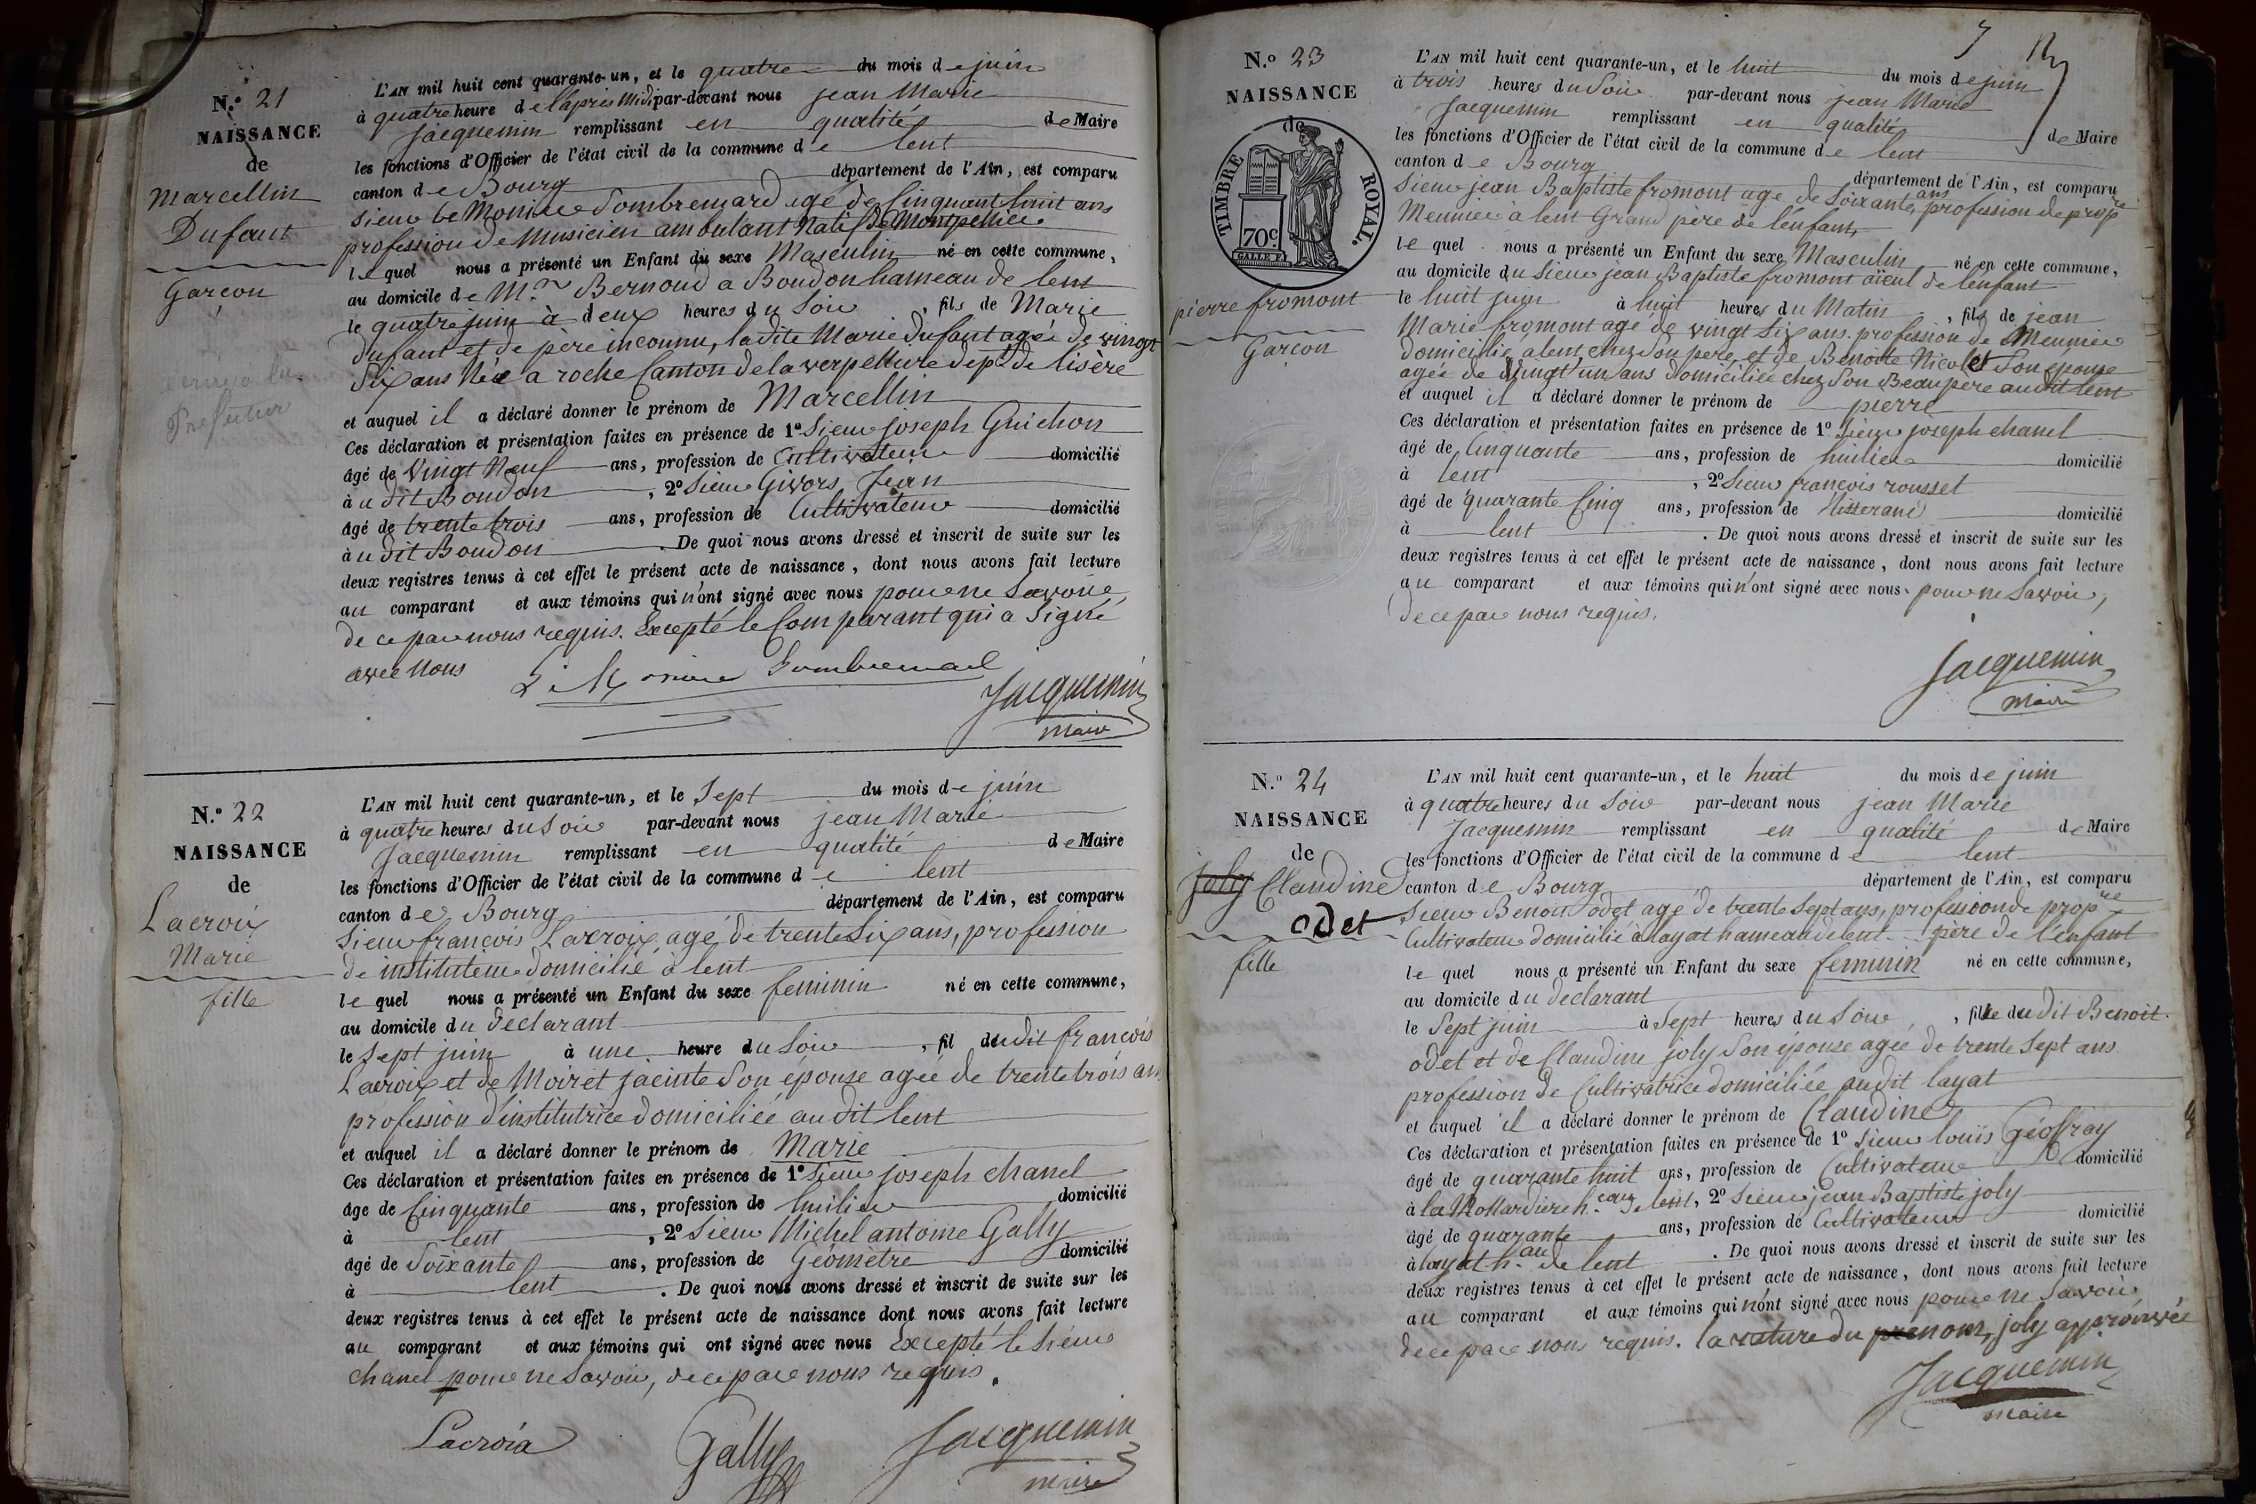 N.° 21
NAISSANCE
de
Marcellin
Dufaut
Garçon
L'AN mil huit cent quarante-un, et le quatre du mois de juin
à quatre heure de l'après Midi par-devant nous jean Marie
Jacquemin remplissant en qualité de Maire
les fonctions d'Officier de l'état civil de la commune de lent
canton de Bourg département de l'Ain, est comparu
Sieur Le Monine Sombremard agé de Cinquant huit ans
profession de Musicien ambulant Natif de Montpellier
le quel nous a présenté un Enfant du sexe Masculin né en cette commune,
au domicile de M. Bernoud a Boudon hameau de lent
le quatre juin à deux heures du Soir, fils de Marie
Dufaut et de père inconnu, ladite Marie Dufaut agée de vingt
Six ans Née a roche Canton de la verpelliere dept de lisère
et auquel il a déclaré donner le prénom de Marcellin
Ces déclaration et présentation faites en présence de 1° Sieur joseph Guichon
âgé de Vingt Neuf ans, profession de Cultivateur domicilié
à udit Boudon, 2° Sieur Givors, Jean
âgé de trente trois ans, profession de Cultivateur domicilié
à udit Boudon. De quoi nous avons dressé et inscrit de suite sur les
deux registres tenus à cet effet le présent acte de naissance, dont nous avons fait lecture
au comparant et aux témoins qui n'ont signé avec nous pour ne Savoir
de ce par nous requis. Excepté le Comparant qui a Signé
avec Nous
Jacquemin
maire
N.° 22
NAISSANCE
de
Lacroix
Marie
fille
L'AN mil huit cent quarante-un, et le Sept du mois de juin
à quatre heures du Soir par-devant nous jean Marie
Jacquemin remplissant en qualité de Maire
les fonctions d'Officier de l'état civil de la commune de lent
canton de Bourg département de l'Ain, est comparu
Sieur françois Lacroix agé de trente Six ans, profession
de instituteur domicilié à lent
le quel nous a présenté un Enfant du sexe feminin né en cette commune,
au domicile du declarant
le Sept juin à une heure du Soir, fil dudit françois
Lacroix et de Moiret jacinte Son epouse agée de trente trois ans
profession d'institutrice domiciliée audit lent
et auquel il a déclaré donner le prénom de Marie
Ces déclaration et présentation faites en présence de 1° Sieur joseph chanel
âgé de Cinquante ans, profession de huilier domicilié
à lent, 2° Sieur Michel antoine Gally
âgé de Soixante ans, profession de Géomètre domicilié
à lent. De quoi nous avons dressé et inscrit de suite sur les
deux registres tenus à cet effet le présent acte de naissance dont nous avons fait lecture
au comparant et aux témoins qui ont signé avec nous Excepté le Sieur
chanel pour ne Savoir, de ce par nous requis.
Lacroix Gally Jacquemin
maire
N.° 23
NAISSANCE
de
TIMBRE ROYAL.
70c
pierre fromont
Garçon
L'AN mil huit cent quarante-un, et le huit du mois de juin
à trois heures du Soir par-devant nous jean Marie
Jacquemin remplissant en qualité de Maire
les fonctions d'Officier de l'état civil de la commune de lent
canton de Bourg département de l'Ain, est comparu
Sieur jean Baptiste fromont age de Soixante ans profession de propre
Meunier à lent Grand père de l'enfant,
le quel nous a présenté un Enfant du sexe Masculin né en cette commune,
au domicile du Sieur jean Baptiste fromont aïeul de l'enfant
le huit juin à huit heures du Matin, fils de jean
Marie fromont agé de vingt Six ans. profession de Meunier
domicilié a lent chez Son pere et de Benoite Nicolet Son épouse
agée de Vingt un ans domiciliée chez Son Beaupère audit lent
et auquel il a déclaré donner le prénom de pierre
Ces déclaration et présentation faites en présence de 1° Sieur joseph chanel
âgé de Cinquante ans, profession de huilier domicilié
à lent, 2° Sieur françois rousset
âgé de quarante Cinq ans, profession de tisserand domicilié
à lent. De quoi nous avons dressé et inscrit de suite sur les
deux registres tenus à cet effet le présent acte de naissance, dont nous avons fait lecture
au comparant et aux témoins qui n'ont signé avec nous pour ne Savoir,
de ce par nous requis.
Jacquemin
maire
N.° 24
NAISSANCE
de
joly Claudine
odet
fille
L'AN mil huit cent quarante-un, et le huit du mois de juin
à quatre heures du Soir par-devant nous jean Marie
Jacquemin remplissant en qualité de Maire
les fonctions d'Officier de l'état civil de la commune de lent
canton de Bourg département de l'Ain, est comparu
Sieur Benoit odet agé de trente Sept ans, profession de propre
Cultivateur domicilié à layat hameau de lent père de l'enfant
le quel nous a présenté un Enfant du sexe feminin né en cette commune,
au domicile du declarant
le Sept juin à Sept heures du Soir, fille dudit Benoit
odet et de Claudine joly Son épouse agée de trente Sept ans
profession de Cultivatrice domiciliée audit layat
et auquel il a déclaré donner le prénom de Claudine
Ces déclaration et présentation faites en présence de 1° Sieur louis Géoffray
âgé de quarante huit ans, profession de Cultivateur domicilié
à la Mollardiere h.eau de lent, 2° Sieur jean Baptiste joly
âgé de quarante ans, profession de Cultivateur domicilié
à layat h.au de lent. De quoi nous avons dressé et inscrit de suite sur les
deux registres tenus à cet effet le présent acte de naissance, dont nous avons fait lecture
au comparant et aux témoins qui n'ont signé avec nous pour ne Savoir
de ce par nous requis. la rature du prénom, joly approuvée
Jacquemin
maire